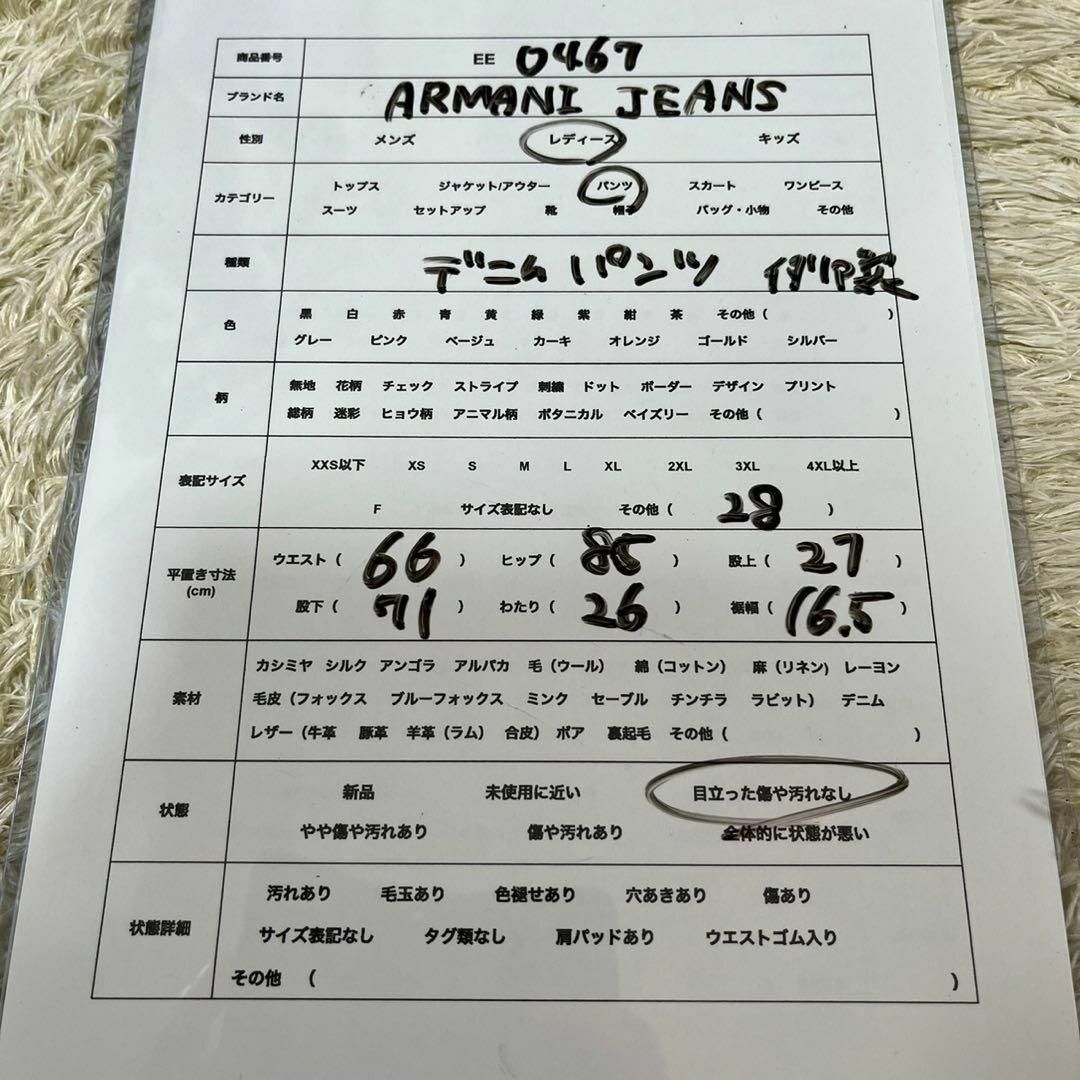 商品番号 EE 0467
ブランド名 ARMANI JEANS
性別 メンズ レディース キッズ
カテゴリー
トップス ジャケット/アウター パンツ スカート ワンピース
スーツ セットアップ 靴 帽子 バッグ・小物 その他
種類 デニム パンツ イタリア製
色
黒 白 赤 青 黄 緑 紫 紺 茶 その他 ( )
グレー ピンク ベージュ カーキ オレンジ ゴールド シルバー
柄
無地 花柄 チェック ストライプ 刺繍 ドット ボーダー デザイン プリント
総柄 迷彩 ヒョウ柄 アニマル柄 ボタニカル ペイズリー その他 ( )
表記サイズ
XXS以下 XS S M L XL 2XL 3XL 4XL以上
F サイズ表記なし その他 ( 28 )
平置き寸法
(cm)
ウエスト ( 66 ) ヒップ ( 85 ) 股上 ( 27 )
股下 ( 71 ) わたり ( 26 ) 裾幅 ( 16.5 )
素材
カシミヤ シルク アンゴラ アルパカ 毛 (ウール) 綿 (コットン) 麻 (リネン) レーヨン
毛皮 (フォックス ブルーフォックス ミンク セーブル チンチラ ラビット) デニム
レザー (牛革 豚革 羊革 (ラム) 合皮) ボア 裏起毛 その他 ( )
状態
新品 未使用に近い 目立った傷や汚れなし
やや傷や汚れあり 傷や汚れあり 全体的に状態が悪い
状態詳細
汚れあり 毛玉あり 色褪せあり 穴あきあり 傷あり
サイズ表記なし タグ類なし 肩パッドあり ウエストゴム入り
その他 ( )